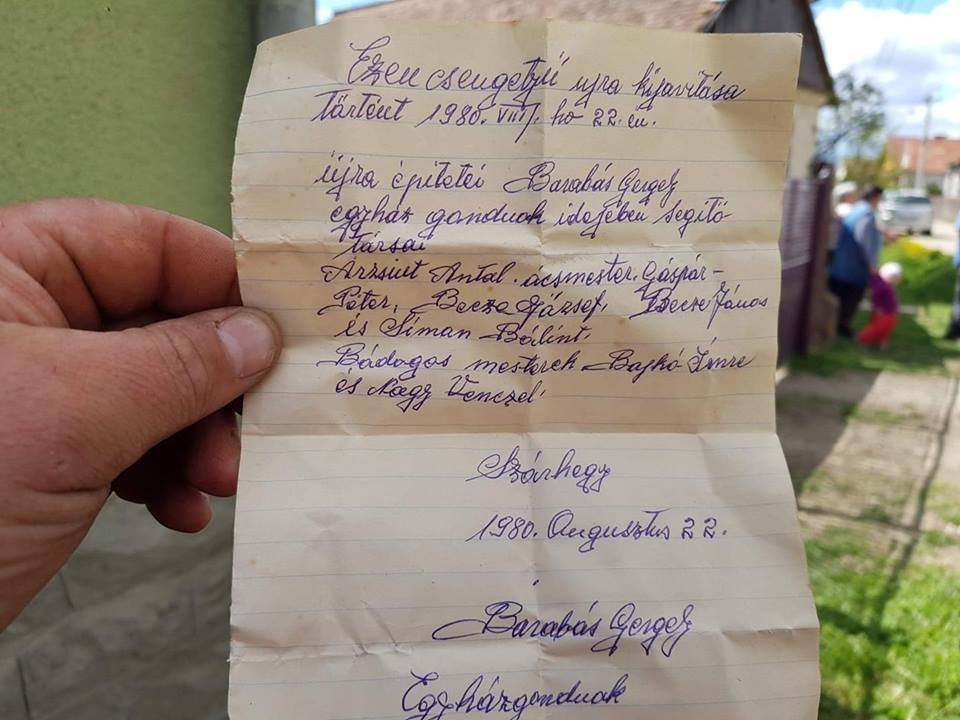 Ezen csengetyű ujra kijavitása
történt 1980. VIII. hó 22. én.
Újra épitetéi Barabás Gergely
egyház gondnok idejében segitő
társai
Arzsint Antal. ácsmester. Gáspár-
Péter, Becze József, Becze János
és Siman Bálint.
Bádogos mesterek Bajkó Imre
és Nagy Venczel.
Szárhegy
1980. Augusztus 22.
Barabás Gergely
Egyházgondnok